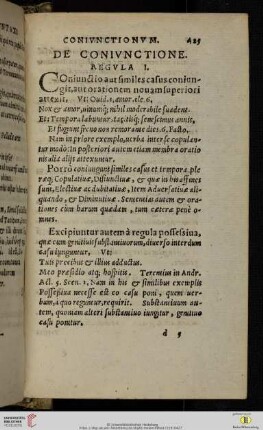 CONIVNCTIONVM. A25
DE CONIVNCTIONE.
REGVLA I.
COniunctio aut similes casus coniun-
git, aut orationem nouam superiori
attexit. Vt Ouid. 1, amor. ele. 6.
Nox & amor, uinumq; nihil moderabile suadent.
Et: Tempora labuntur, tacitisq; senescimus annis,
Et fugiunt freno non remorante dies. 6. Fasto.
Nam in priore exemplo, uerba inter se copulan-
tur modo: In posteriori autem etiam membra oratio-
nis alia alijs attexuntur.
Porrò coniungunt similes casus et tempora, ple
ræq; Copulatiuæ, Disiunctiuæ, & quæ in his assunt
sunt, Electiuæ ac dubitatiuæ, Item Aduersatiuæ ali-
quando, & Diminutiuæ. Sententias autem & ora
tiones cùm harum quædam, tum cæteræ penè o-
mnes.
Excipiuntur autem à regula possessiua,
quæ cum genitiuis substantiuorum, diuerso interdum
casu iunguntur. Vt:
Tuis precibus & illius adductus.
Meo præsidio atq; hospitis. Terentius in Andr.
Act. 5. Scen. 1, Nam in his & similibus exemplis
Possessiua necesse est eo casu poni, quem uer-
bum, à quo reguntur, requirit. Substantiuum au-
tem, quoniam alteri substantiuo iungitur, genitiuo
casu ponitur.
d 5